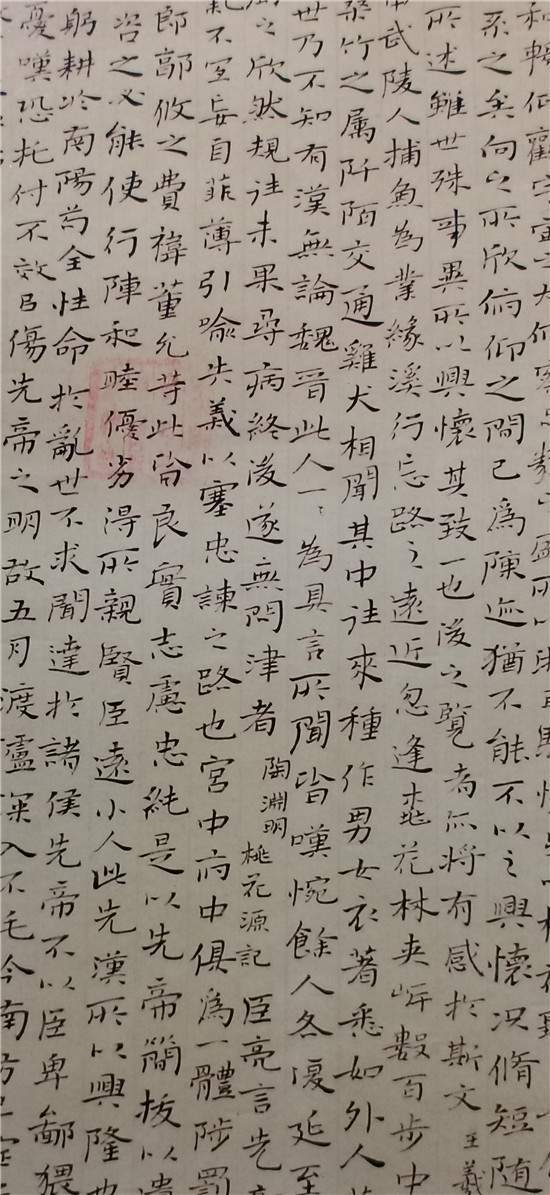 和暢仰觀宇宙之大俯察品類之盛所以
系之矣向之所欣俯仰之間已為陳迹猶不能不以之興懷況脩短随
所述雖世殊事異所以興懷其致一也後之覽者亦将有感於斯文 王羲
武陵人捕魚為業緣溪行忘路之遠近忽逢桃花林夹岸數百步中
桑竹之属阡陌交通雞犬相聞其中往來種作男女衣著悉如外人
世乃不知有漢無論魏晉此人一一為具言所聞皆嘆惋餘人各復延至
之欣然規往未果尋病終後遂無問津者 陶淵明 桃花源記 臣亮言先
亂不宜妄自菲薄引喻失義以塞忠諫之路也宮中府中俱為一體陟罰
郎郭攸之費禕董允等此皆良實志慮忠純是以先帝簡拔以遺
咨之必能使行陣和睦優劣得所親賢臣遠小人此先漢所以興隆也
躬耕於南陽苟全性命於亂世不求聞達於諸侯先帝不以臣卑鄙猥
憂嘆恐托付不效以傷先帝之明故五月渡瀘深入不毛今南方已定